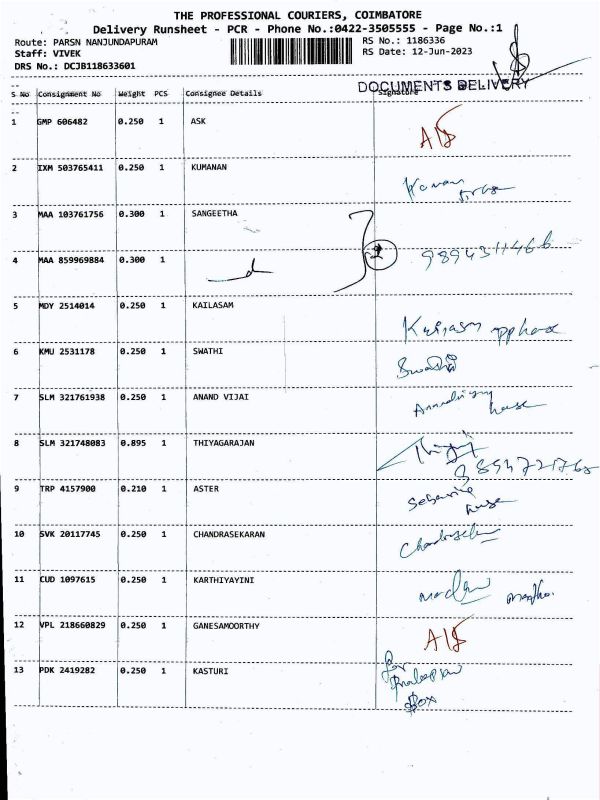 THE PROFESSIONAL COURIERS, COIMBATORE
Delivery Runsheet - PCR - Phone No.:0422-3505555 - Page No.:1
Route: PARSN NANJUNDAPURAM RS No.: 1186336
Staff: VIVEK RS Date: 12-Jun-2023
DRS No.: DCJB118633601
DOCUMENTS DELIVERY
S No Consignment No Weight PCS Consignee Details Signature
1 GMP 606482 0.250 1 ASK
2 IXM 503765411 0.250 1 KUMANAN
3 MAA 103761756 0.300 1 SANGEETHA
4 MAA 859969884 0.300 1 2 9894311466
5 MDY 2514014 0.250 1 KAILASAM
6 KMU 2531178 0.250 1 SWATHI
7 SLM 321761938 0.250 1 ANAND VIJAI house
8 SLM 321748083 0.895 1 THIYAGARAJAN
9 TRP 4157900 0.210 1 ASTER
10 SVK 20117745 0.250 1 CHANDRASEKARAN
11 CUD 1097615 0.250 1 KARTHIYAYINI
12 VPL 218660829 0.250 1 GANESAMOORTHY
13 PDK 2419282 0.250 1 KASTURI
Box